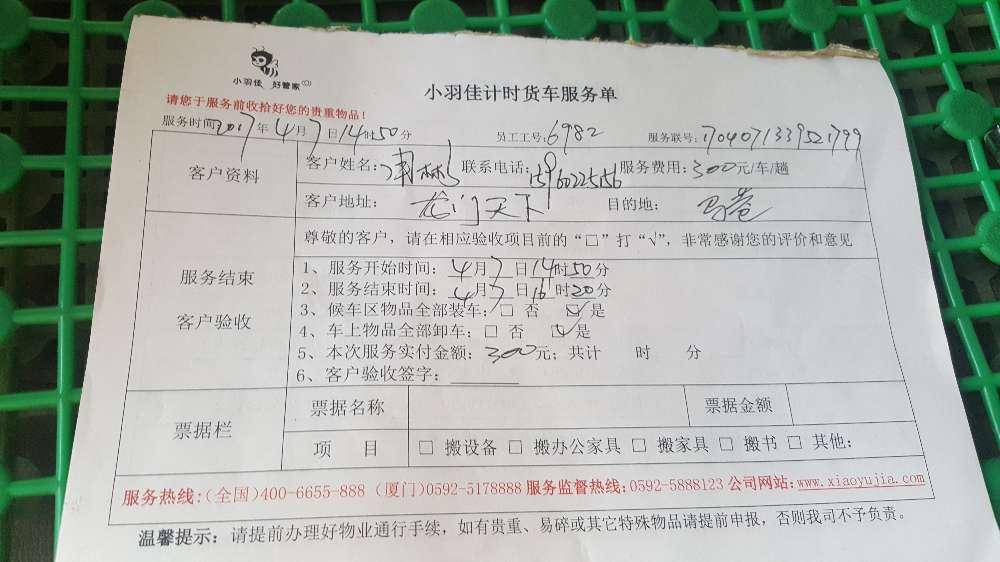 小羽佳 好管家
小羽佳计时货车服务单
请您于服务前收拾好您的贵重物品！
服务时间2017年4月7日14时50分 员工工号:6982 服务联号:1704071339521799
客户资料
客户姓名: 联系电话: 服务费用:300元/车/趟
客户地址: 龙门天下 目的地:
服务结束
客户验收
尊敬的客户，请在相应验收项目前的“□”打“√”，非常感谢您的评价和意见
1、服务开始时间：4月7日14时50分
2、服务结束时间：4月7日16时20分
3、候车区物品全部装车：□ 否 ☑是
4、车上物品全部卸车：□ 否 ☑是
5、本次服务实付金额：300元；共计 时 分
6、客户验收签字：
票据栏
票据名称 票据金额
项 目 □ 搬设备 □ 搬办公家具 □ 搬家具 □ 搬书 □ 其他:
服务热线:(全国)400-6655-888 (厦门)0592-5178888 服务监督热线:0592-5888123 公司网站:www.xiaoyujia.com
温馨提示：请提前办理好物业通行手续，如有贵重、易碎或其它特殊物品请提前申报，否则我司不予负责。